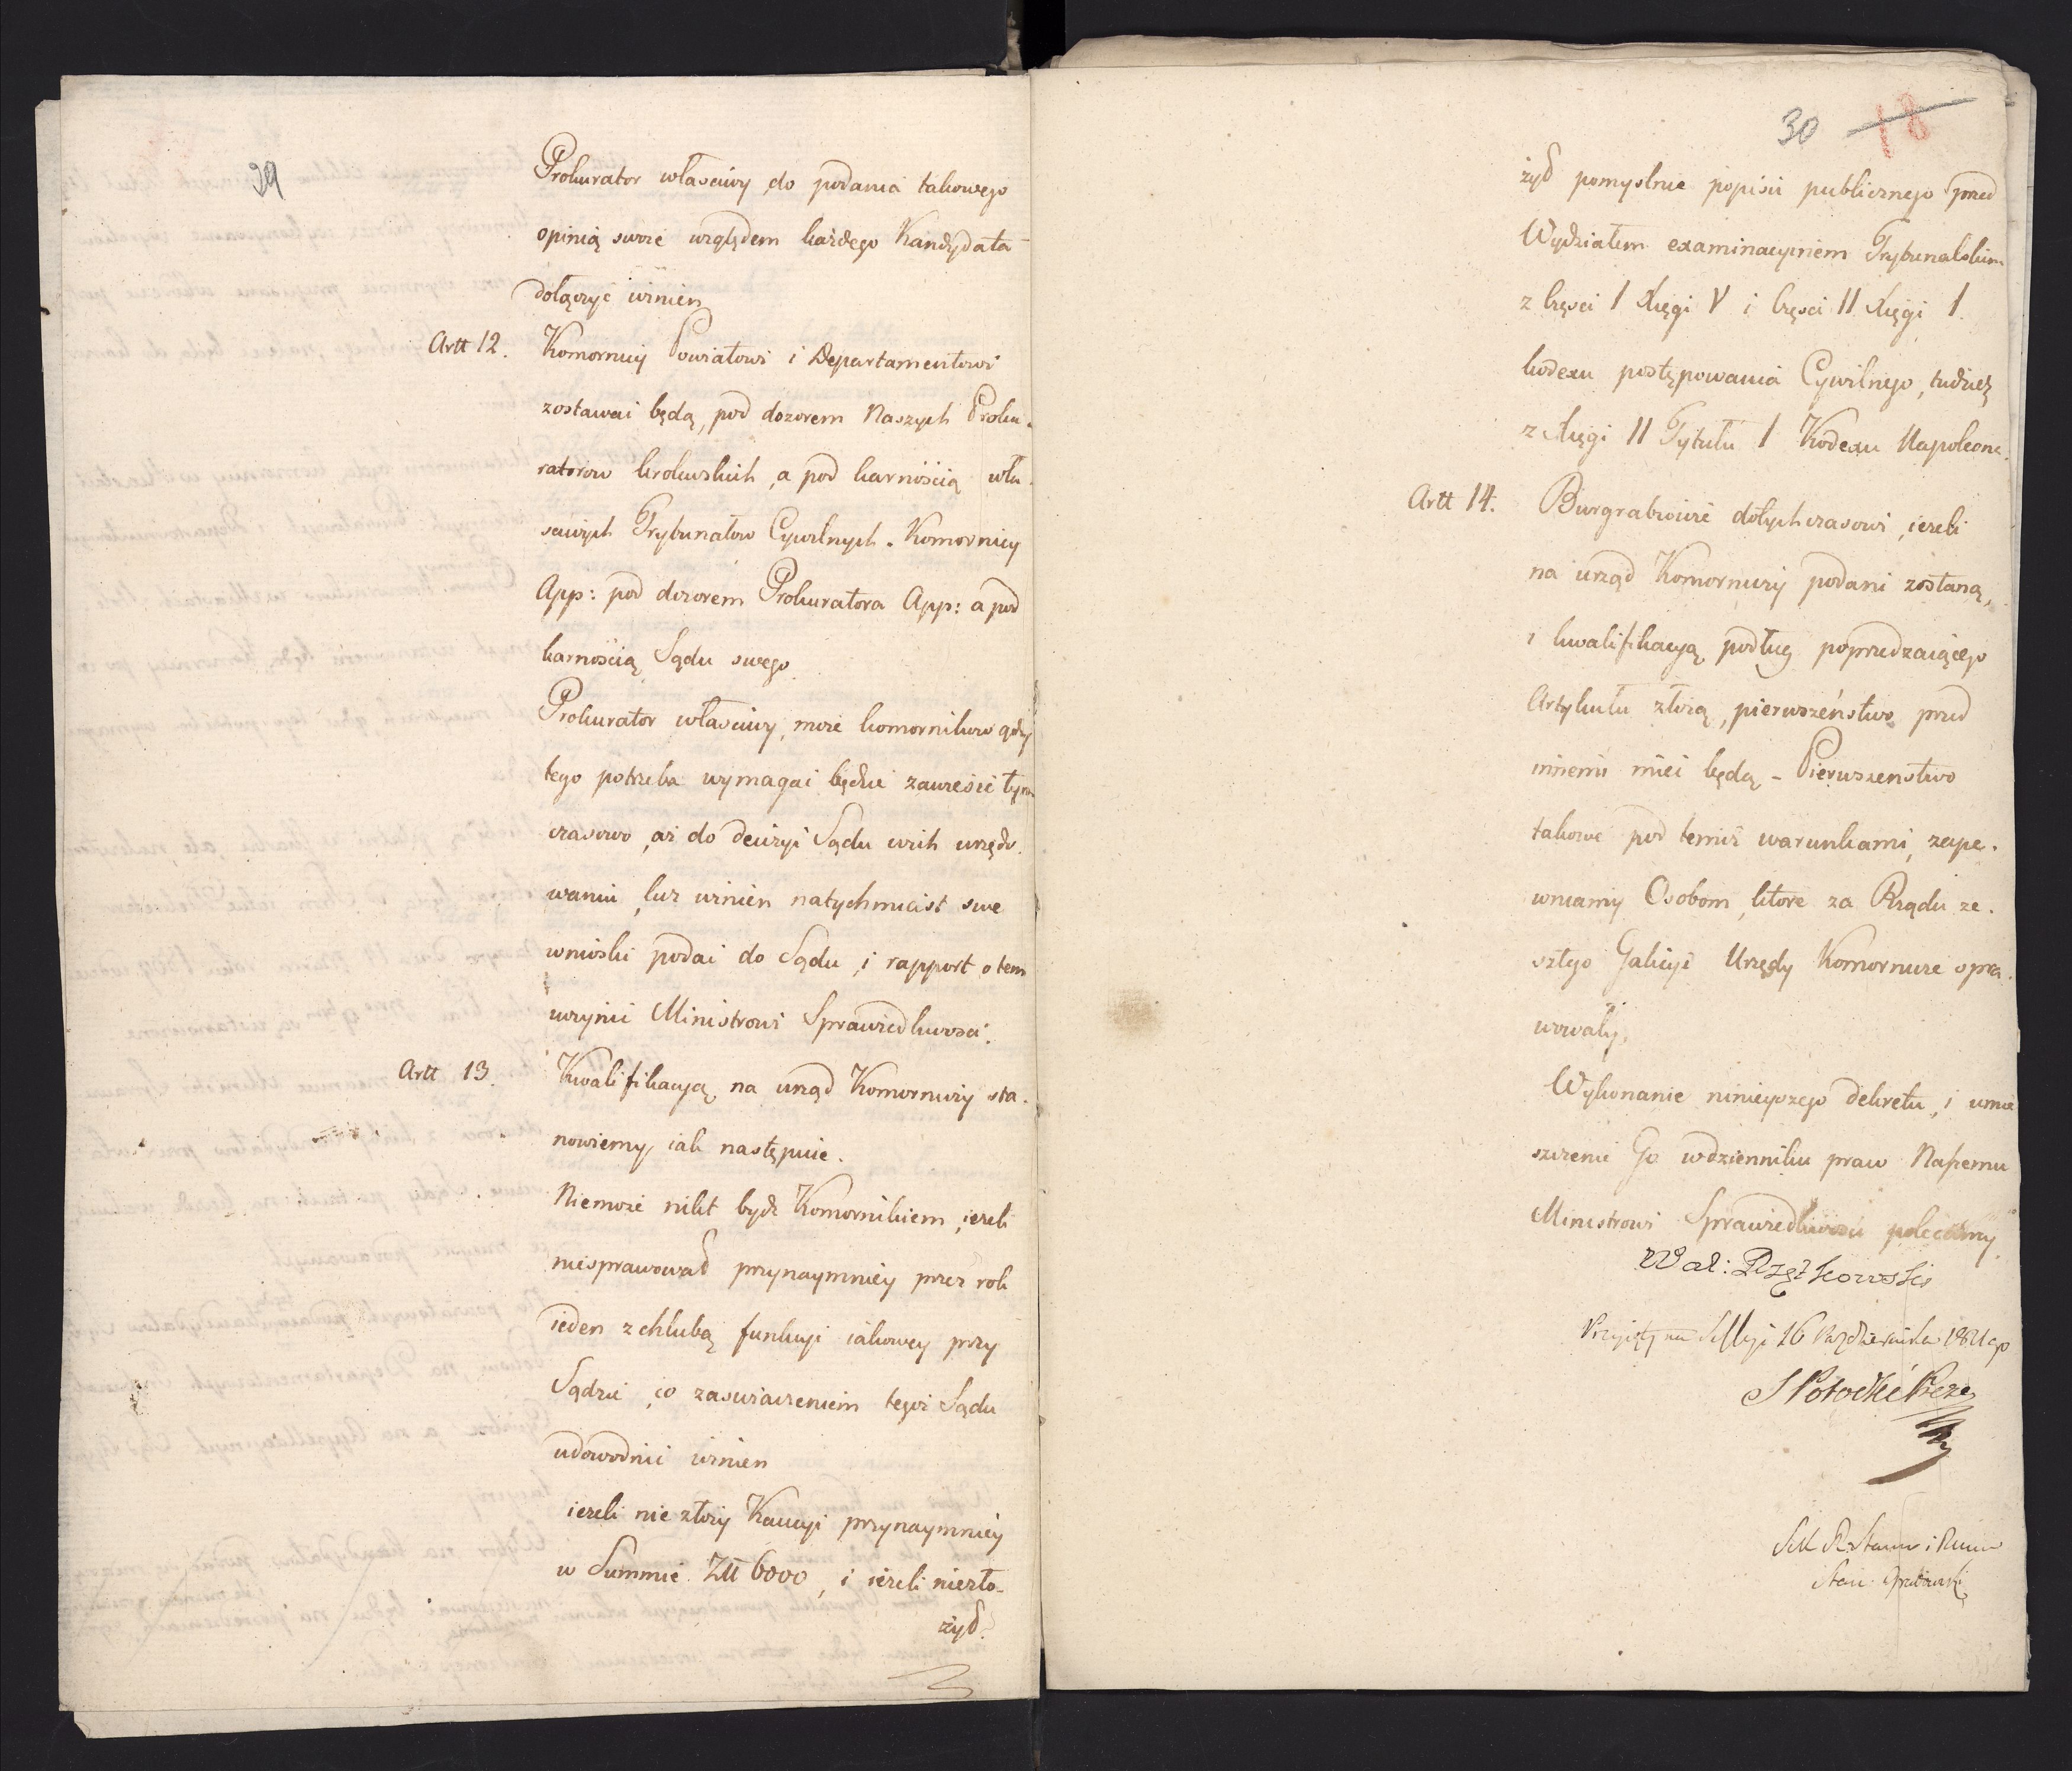 29
Prokurator właściwy do podania takowego
opinią swoie względem każdego Kandydata
dołączyć winien
Artt 12. Komornicy Powiatowi i Departamentowi
zostawać będą, pod dozorem Naszych Proku-
ratorow krolewskich, a pod karnością wła-
sciwych Trybunałow Cywilnych. Komornicy
App: pod dozorem Prokuratora App: a pod
karnością Sądu swego.
Prokurator właściwy, może komornikow gdy
tego potrzeba wymagać będzie zawiesić tym
czasowo, aż do decizyi Sądu w ich urzędo-
waniu, lecz winien natychmiast swe
wnioski podać do Sądu, i rapport o tem
uczynić Ministrowi Sprawiedliwości.
Artt 13. Kwalifikacyą na urząd Komorniczy sta-
nowiemy, iak następuie.
Niemoże nikt bydź Komornikiem, ieżeli
niesprawował przynaymniey przez rok
ieden z chlubą funkcyi iakowey przy
Sądzie, co zaswiadczeniem tegoż Sądu
udowodnić winien
ieżeli nie złoży Kaucyi przynaymniey
w Summie Złł 6000, i ieżeli niezło-
żył.
30 18
żył pomyslnie popisu publicznego przed
Wydziałem examinacyinem Trybunalskim
z Części I Xięgi V i Części II Xięgi I.
kodexu postępowania Cywilnego, tudzież
z Xięgi II Tytułu I Kodexu Napoleona.
Artt 14. Burgrabiowie dotychczasowi, ieżeli
na urząd Komorniczy podani zostaną,
i kwalifikacyą podług poprzedzaiącego
Artykułu złożą, pierwszeństwo przed
innemi mieć będą - Pierwszenstwo
takowe pod temiż warunkami, zape-
wniamy Osobom, ktore za Rządu ze-
szłego Galicyi Urzędy Komornicze spra-
wowały.
Wykonanie ninieyszego dekretu, i umie
szczenie Go w dzienniku praw Naszemu
Ministrowi Sprawiedliwości polecamy.
Wal: Rzętkowski
Przyięty na Sessyi 16 Października 1811 go
S Potocki Prezes
Sek R. Stanu i
Stan: Grabowski